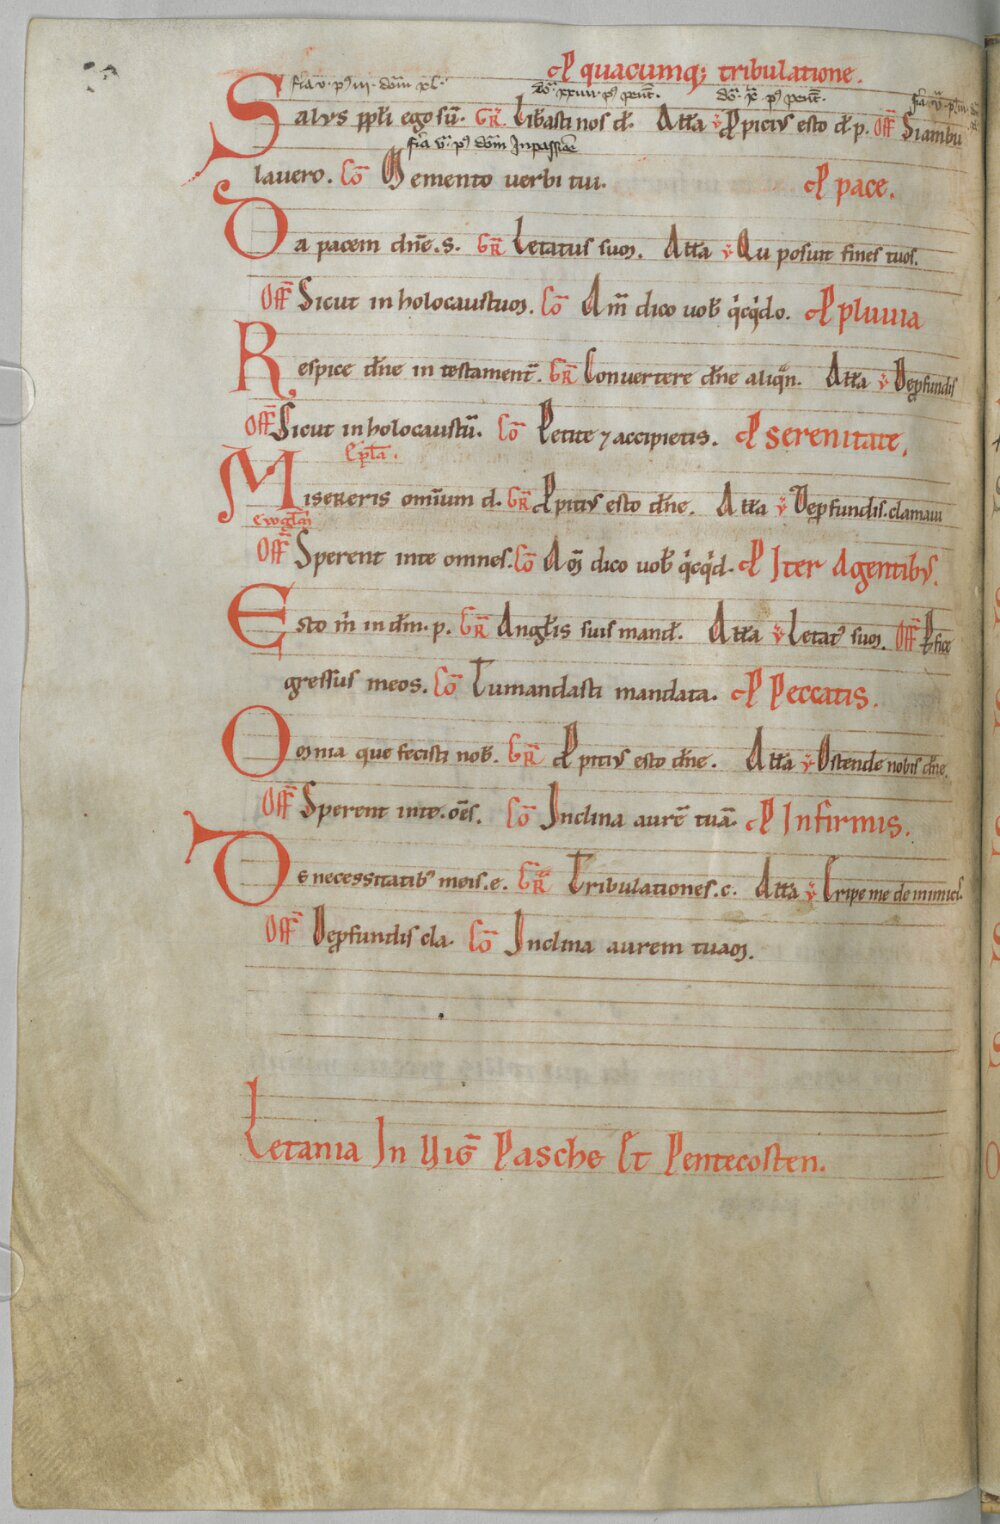 P quacumq; tribulatione.
fĩa v. p' iii. dom̃ xl'.
do. xxiiii. p' pent̃. do. x. p' pent̃.
Salus ppł̃i ego sũ. GR̃ Lib̃asti nos d̃. Alła ℣ Ppitius esto d̃. p. Off̃ Si ambu
fĩa v. p' dom̃ In passiõe
lauero. Cõ Memento uerbi tui. P pace.
Da pacem dñe. s. GR̃ Letatus sum. Alła ℣ Qui posuit fines tuos.
Off̃ Sicut in holocaustum. Cõ Am̃ dico uob' q̇cq̇d o. P pluuia
Respice dñe in testament̃. GR̃ Conuertere dñe aliq̃n. Alła ℣ De pfundis
Off̃ Sicut in holocaustũ. Cõ Petite ⁊ accipietis. P serenitate.
Epl̃a.
Misereris omĩum d. GR̃ Ppitius esto dñe. Alła ℣ De pfundis. clamaui
ewgl̃m
Off̃ Sperent in te omnes. Cõ Am dico uob' q̇cq̇d. P Iter Agentibus.
Esto m̃ in dm̃. p. GR̃ Angłis suis mand̃. Alła ℣ Letat' sum. Off̃ Pfice
gressus meos. Cõ Tu mandasti mandata. P Peccatis.
Omnia que fecisti nob'. GR̃ Ppitius esto dñe. Alła ℣ Ostende nobis dñe.
Off̃ Sperent in te. oẽs. Cõ Inclina aurẽ tuã. P Infirmis.
De necessitatib' meis. e. GR̃ Tribulationes. c. Alła ℣ Eripe me de inimicis.
Off̃ De pfundis cla. Cõ Inclina aurem tuam.
Letania In Uiḡ Pasche Et Pentecosten.